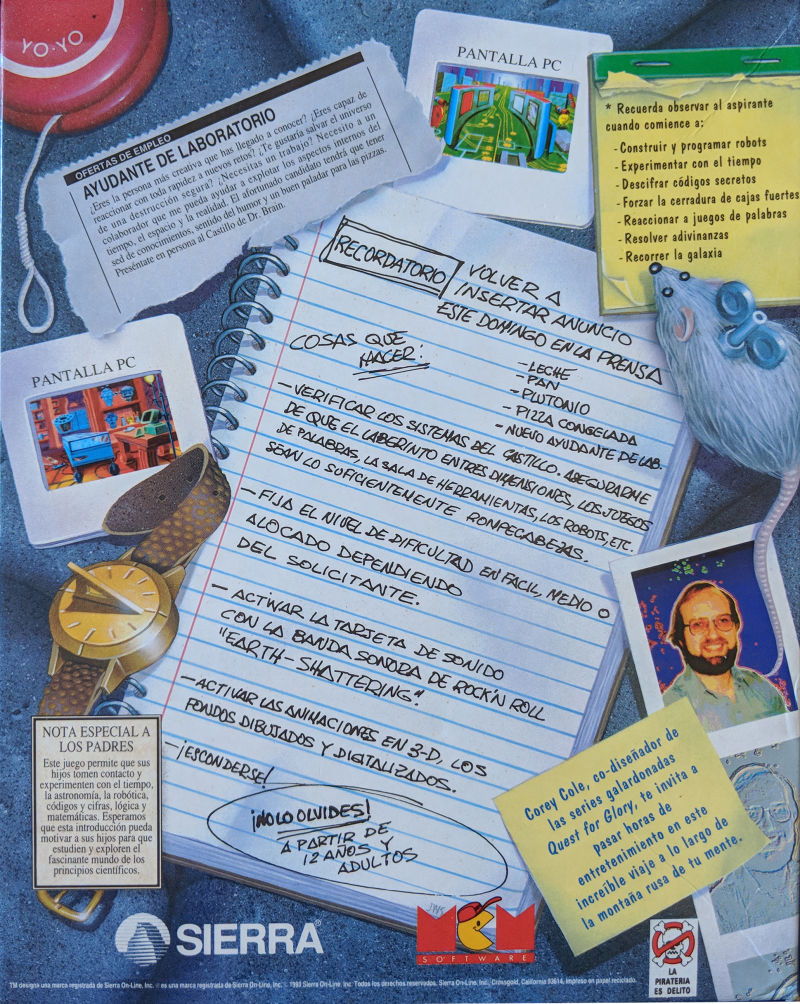 YO-YO
OFERTAS DE EMPLEO
AYUDANTE DE LABORATORIO
¿Eres la persona más creativa que has llegado a conocer? ¿Eres capaz de
reaccionar con toda rapidez a nuevos retos? ¿Te gustaría salvar el universo
de una destrucción segura? ¿Necesitas un trabajo? Necesito un
colaborador que me pueda ayudar a explotar los aspectos internos del
tiempo, el espacio y la realidad. El afortunado candidato tendrá que tener
sed de conocimientos, sentido del humor y un buen paladar para las pizzas.
Preséntate en persona al Castillo de Dr. Brain.
PANTALLA PC
* Recuerda observar al aspirante
cuando comience a:
- Construir y programar robots
- Experimentar con el tiempo
- Descifrar códigos secretos
- Forzar la cerradura de cajas fuertes
- Reaccionar a juegos de palabras
- Resolver adivinanzas
- Recorrer la galaxia
RECORDATORIO
VOLVER A
INSERTAR ANUNCIO
ESTE DOMINGO EN LA PRENSA
COSAS QUE
HACER:
- LECHE
- PAN
- PLUTONIO
- PIZZA CONGELADA
- NUEVO AYUDANTE DE LAB.
- VERIFICAR LOS SISTEMAS DEL CASTILLO. ASEGURARME
DE QUE EL LABERINTO EN TRES DIMENSIONES, LOS JUEGOS
DE PALABRAS, LA SALA DE HERRAMIENTAS, LOS ROBOTS, ETC.
SEAN LO SUFICIENTEMENTE ROMPECABEZAS.
- FIJA EL NIVEL DE DIFICULTAD EN FACIL, MEDIO O
ALOCADO DEPENDIENDO
DEL SOLICITANTE.
- ACTIVAR LA TARJETA DE SONIDO
CON LA BANDA SONORA DE ROCK'N ROLL
"EARTH-SHATTERING".
- ACTIVAR LAS ANIMACIONES EN 3-D, LOS
FONDOS DIBUJADOS Y DIGITALIZADOS.
- ¡ESCONDERSE!
¡NO LO OLVIDES!
A PARTIR DE
12 AÑOS Y
ADULTOS
PANTALLA PC
NOTA ESPECIAL A
LOS PADRES
Este juego permite que sus
hijos tomen contacto y
experimenten con el tiempo,
la astronomía, la robótica,
códigos y cifras, lógica y
matemáticas. Esperamos
que esta introducción pueda
motivar a sus hijos para que
estudien y exploren el
fascinante mundo de los
principios científicos.
Corey Cole, co-diseñador de
las series galardonadas
Quest for Glory, te invita a
pasar horas de
entretenimiento en este
increíble viaje a lo largo de
la montaña rusa de tu mente.
SIERRA®
MCM
SOFTWARE
LA
PIRATERIA
ES DELITO
TM designa una marca registrada de Sierra On-Line, Inc. ® es una marca registrada de Sierra On-Line, Inc. © 1993 Sierra On-Line, Inc. Todos los derechos reservados. Sierra On-Line, Inc., Coarsegold, California 93614, impreso en papel reciclado.